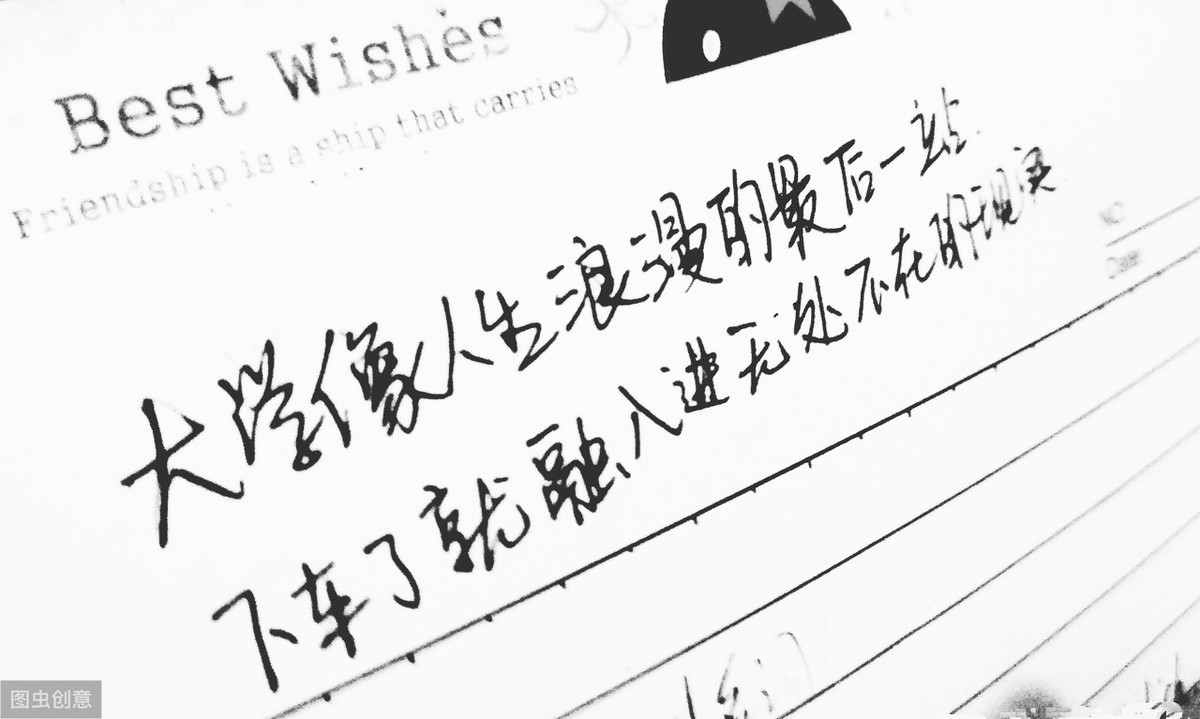 Best Wishes
Friendship is a ship that carries
大学像人生浪漫的最后一站
下车了就融入进无处不在的现实
No
Date
图虫创意